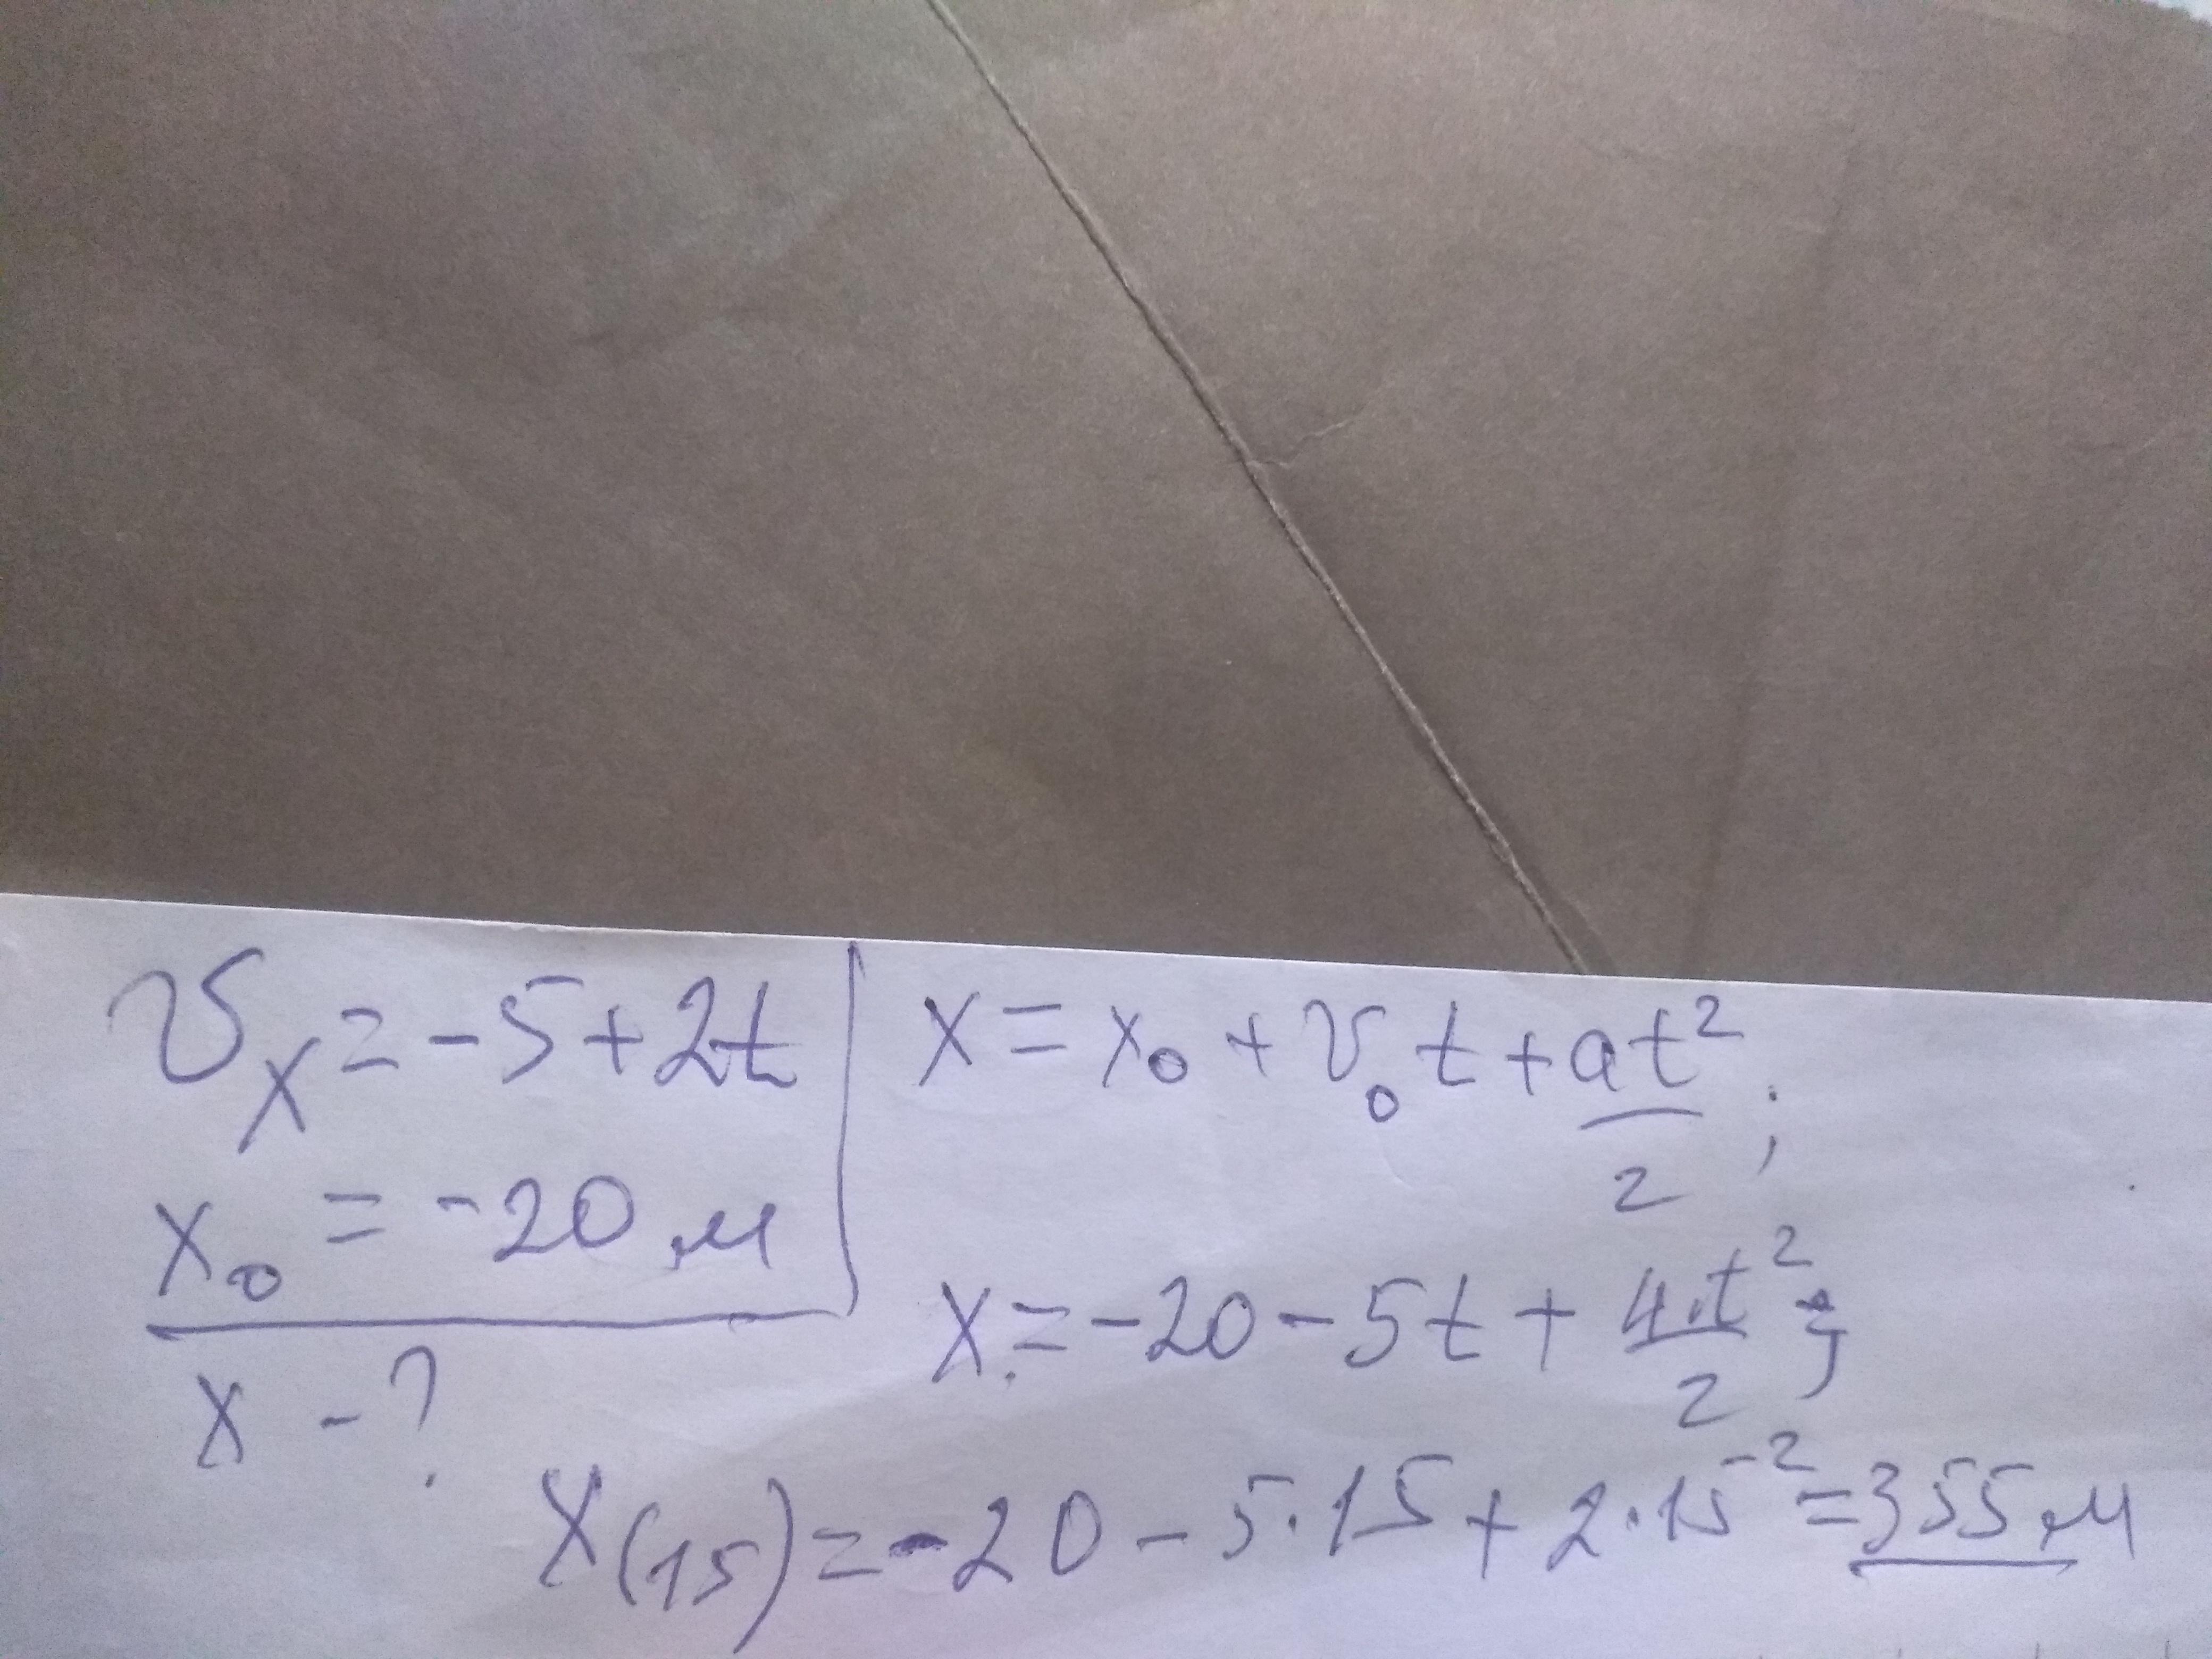 υₓ = -5 + 2t
x₀ = -20 м
x - ?
x = x₀ + υ₀t + at²/2 ;
x = -20 - 5t + 4·t²/2 ;
x(15) = -20 - 5·15 + 2·15² = 355 м